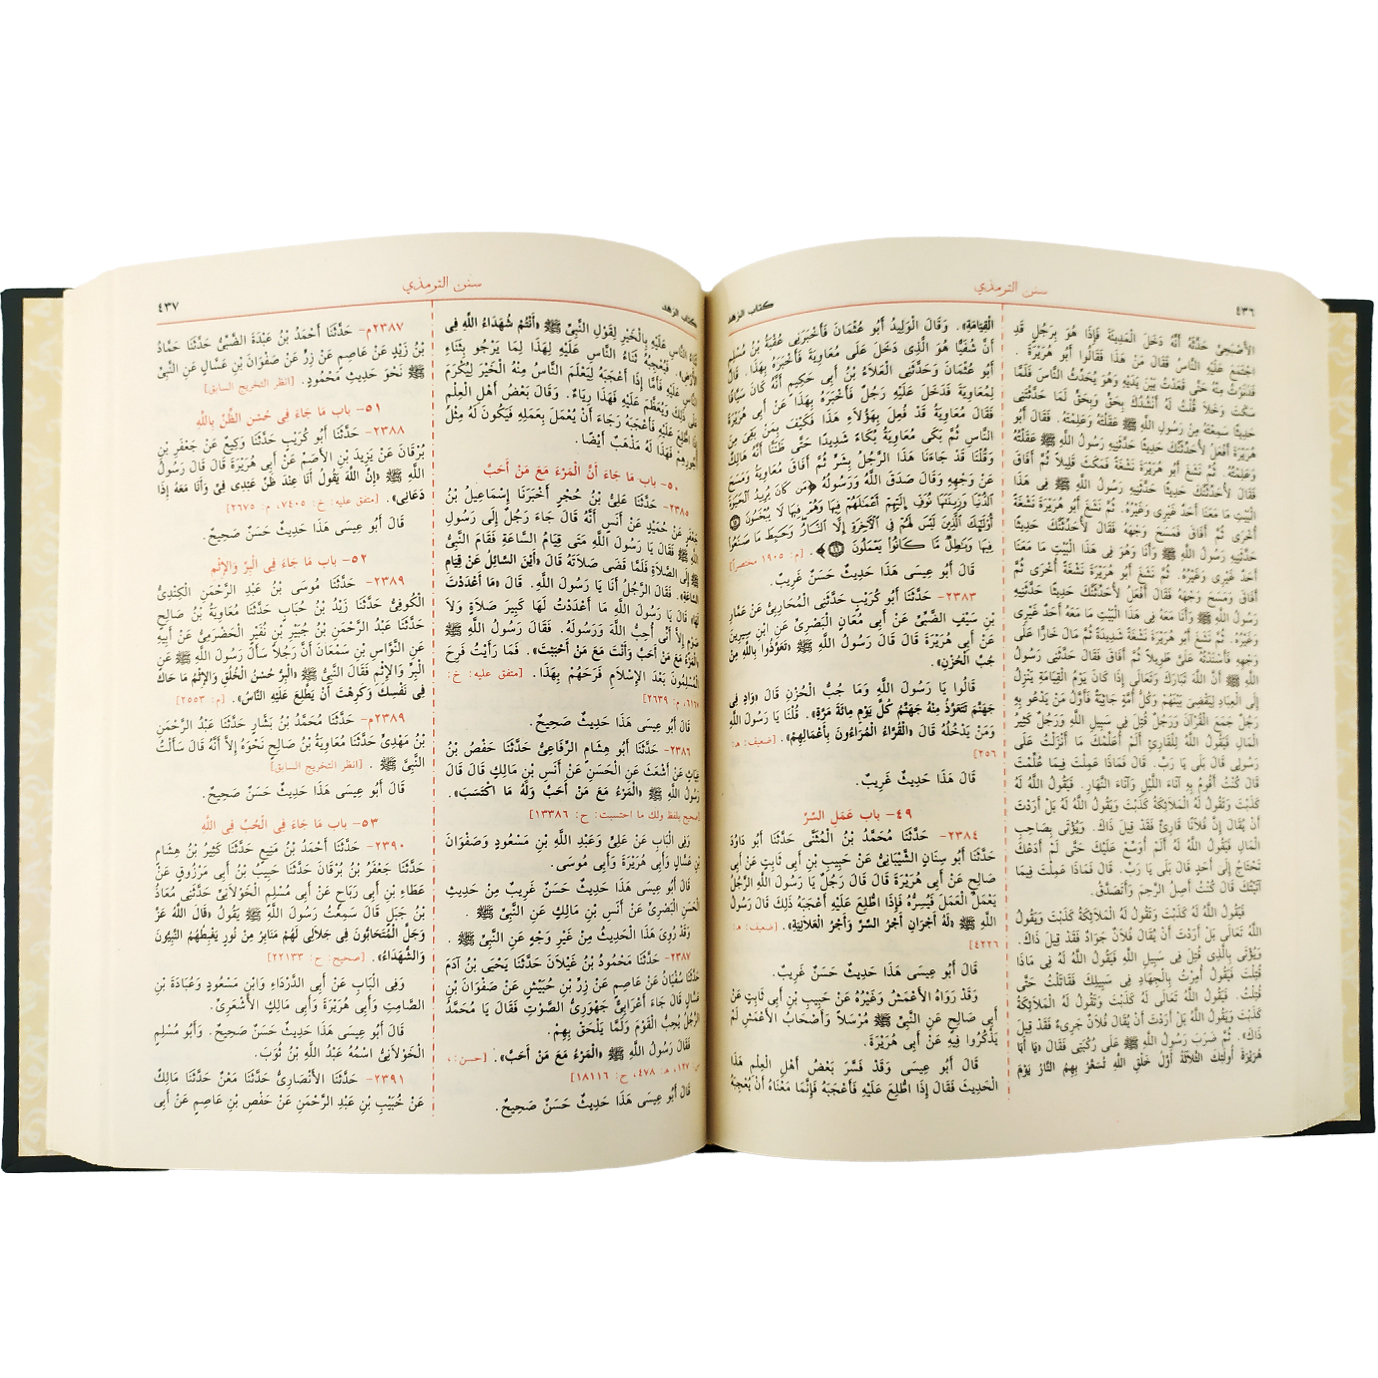 ٤٣٦
سنن الترمذي
كتاب الزهد
الأَصْبَحِيَّ حَدَّثَهُ أَنَّهُ دَخَلَ الْمَدِينَةَ فَإِذَا هُوَ بِرَجُلٍ قَدِ
اجْتَمَعَ عَلَيْهِ النَّاسُ فَقَالَ مَنْ هَذَا فَقَالُوا أَبُو هُرَيْرَةَ .
فَدَنَوْتُ مِنْهُ حَتَّى قَعَدْتُ بَيْنَ يَدَيْهِ وَهُوَ يُحَدِّثُ النَّاسَ فَلَمَّا
سَكَتَ وَخَلاَ قُلْتُ لَهُ أَنْشُدُكَ بِحَقٍّ وَبِحَقٍّ لَمَا حَدَّثْتَنِي
حَدِيثًا سَمِعْتَهُ مِنْ رَسُولِ اللَّهِ ﷺ عَقَلْتَهُ وَعَلِمْتَهُ . فَقَالَ أَبُو
هُرَيْرَةَ أَفْعَلُ لأُحَدِّثَنَّكَ حَدِيثًا حَدَّثَنِيهِ رَسُولُ اللَّهِ ﷺ عَقَلْتُهُ
وَعَلِمْتُهُ . ثُمَّ نَشَغَ أَبُو هُرَيْرَةَ نَشْغَةً فَمَكَثَ قَلِيلاً ثُمَّ أَفَاقَ
فَقَالَ لأُحَدِّثَنَّكَ حَدِيثًا حَدَّثَنِيهِ رَسُولُ اللَّهِ ﷺ فِي هَذَا
الْبَيْتِ مَا مَعَنَا أَحَدٌ غَيْرِي وَغَيْرُهُ. ثُمَّ نَشَغَ أَبُو هُرَيْرَةَ نَشْغَةً
أُخْرَى ثُمَّ أَفَاقَ فَمَسَحَ وَجْهَهُ فَقَالَ لأُحَدِّثَنَّكَ حَدِيثًا
حَدَّثَنِيهِ رَسُولُ اللَّهِ ﷺ وَأَنَا وَهُوَ فِي هَذَا الْبَيْتِ مَا مَعَنَا
أَحَدٌ غَيْرِي وَغَيْرُهُ. ثُمَّ نَشَغَ أَبُو هُرَيْرَةَ نَشْغَةً أُخْرَى ثُمَّ
أَفَاقَ وَمَسَحَ وَجْهَهُ فَقَالَ أَفْعَلُ لأُحَدِّثَنَّكَ حَدِيثًا حَدَّثَنِيهِ
رَسُولُ اللَّهِ ﷺ وَأَنَا مَعَهُ فِي هَذَا الْبَيْتِ مَا مَعَهُ أَحَدٌ غَيْرِي
وَغَيْرُهُ. ثُمَّ نَشَغَ أَبُو هُرَيْرَةَ نَشْغَةً شَدِيدَةً ثُمَّ مَالَ خَارًّا عَلَى
وَجْهِهِ فَأَسْنَدْتُهُ عَلَيَّ طَوِيلاً ثُمَّ أَفَاقَ فَقَالَ حَدَّثَنِي رَسُولُ
اللَّهِ ﷺ أَنَّ اللَّهَ تَبَارَكَ وَتَعَالَى إِذَا كَانَ يَوْمُ الْقِيَامَةِ يَنْزِلُ
إِلَى الْعِبَادِ لِيَقْضِيَ بَيْنَهُمْ وَكُلُّ أُمَّةٍ جَاثِيَةٌ فَأَوَّلُ مَنْ يَدْعُو بِهِ
رَجُلٌ جَمَعَ الْقُرْآنَ وَرَجُلٌ قُتِلَ فِي سَبِيلِ اللَّهِ وَرَجُلٌ كَثِيرُ
الْمَالِ فَيَقُولُ اللَّهُ لِلْقَارِئِ أَلَمْ أُعَلِّمْكَ مَا أَنْزَلْتُ عَلَى
رَسُولِي قَالَ بَلَى يَا رَبِّ. قَالَ فَمَاذَا عَمِلْتَ فِيمَا عُلِّمْتَ
قَالَ كُنْتُ أَقُومُ بِهِ آنَاءَ اللَّيْلِ وَآنَاءَ النَّهَارِ. فَيَقُولُ اللَّهُ لَهُ
كَذَبْتَ وَتَقُولُ لَهُ الْمَلاَئِكَةُ كَذَبْتَ وَيَقُولُ اللَّهُ لَهُ بَلْ أَرَدْتَ
أَنْ يُقَالَ إِنَّ فُلاَنًا قَارِئٌ فَقَدْ قِيلَ ذَاكَ. وَيُؤْتَى بِصَاحِبِ
الْمَالِ فَيَقُولُ اللَّهُ لَهُ أَلَمْ أُوَسِّعْ عَلَيْكَ حَتَّى لَمْ أَدَعْكَ
تَحْتَاجُ إِلَى أَحَدٍ قَالَ بَلَى يَا رَبِّ. قَالَ فَمَاذَا عَمِلْتَ فِيمَا
آتَيْتُكَ قَالَ كُنْتُ أَصِلُ الرَّحِمَ وَأَتَصَدَّقُ.
فَيَقُولُ اللَّهُ لَهُ كَذَبْتَ وَتَقُولُ لَهُ الْمَلاَئِكَةُ كَذَبْتَ وَيَقُولُ
اللَّهُ تَعَالَى بَلْ أَرَدْتَ أَنْ يُقَالَ فُلاَنٌ جَوَادٌ فَقَدْ قِيلَ ذَاكَ.
وَيُؤْتَى بِالَّذِي قُتِلَ فِي سَبِيلِ اللَّهِ فَيَقُولُ اللَّهُ لَهُ فِي مَاذَا
قُتِلْتَ فَيَقُولُ أُمِرْتُ بِالْجِهَادِ فِي سَبِيلِكَ فَقَاتَلْتُ حَتَّى
قُتِلْتُ. فَيَقُولُ اللَّهُ تَعَالَى لَهُ كَذَبْتَ وَتَقُولُ لَهُ الْمَلاَئِكَةُ
كَذَبْتَ وَيَقُولُ اللَّهُ بَلْ أَرَدْتَ أَنْ يُقَالَ فُلاَنٌ جَرِيءٌ فَقَدْ قِيلَ
ذَاكَ». ثُمَّ ضَرَبَ رَسُولُ اللَّهِ ﷺ عَلَى رُكْبَتِي فَقَالَ «يَا أَبَا
هُرَيْرَةَ أُولَئِكَ الثَّلاَثَةُ أَوَّلُ خَلْقِ اللَّهِ تُسَعَّرُ بِهِمُ النَّارُ يَوْمَ
الْقِيَامَةِ». وَقَالَ الْوَلِيدُ أَبُو عُثْمَانَ فَأَخْبَرَنِي عُقْبَةُ بْنُ مُسْلِمٍ
أَنَّ شُفَيًّا هُوَ الَّذِي دَخَلَ عَلَى مُعَاوِيَةَ فَأَخْبَرَهُ بِهَذَا. قَالَ
أَبُو عُثْمَانَ وَحَدَّثَنِي الْعَلاَءُ بْنُ أَبِي حَكِيمٍ أَنَّهُ كَانَ سَيَّافًا
لِمُعَاوِيَةَ فَدَخَلَ عَلَيْهِ رَجُلٌ فَأَخْبَرَهُ بِهَذَا عَنْ أَبِي هُرَيْرَةَ
فَقَالَ مُعَاوِيَةُ قَدْ فُعِلَ بِهَؤُلاَءِ هَذَا فَكَيْفَ بِمَنْ بَقِيَ مِنَ
النَّاسِ ثُمَّ بَكَى مُعَاوِيَةُ بُكَاءً شَدِيدًا حَتَّى ظَنَنَّا أَنَّهُ هَالِكٌ
وَقُلْنَا قَدْ جَاءَنَا هَذَا الرَّجُلُ بِشَرٍّ ثُمَّ أَفَاقَ مُعَاوِيَةُ وَمَسَحَ
عَنْ وَجْهِهِ وَقَالَ صَدَقَ اللَّهُ وَرَسُولُهُ ﴿مَن كَانَ يُرِيدُ ٱلْحَيَوٰةَ
ٱلدُّنْيَا وَزِينَتَهَا نُوَفِّ إِلَيْهِمْ أَعْمَٰلَهُمْ فِيهَا وَهُمْ فِيهَا لَا يُبْخَسُونَ ۝١٥
أُو۟لَٰٓئِكَ ٱلَّذِينَ لَيْسَ لَهُمْ فِى ٱلْءَاخِرَةِ إِلَّا ٱلنَّارُ وَحَبِطَ مَا صَنَعُوا۟
فِيهَا وَبَٰطِلٌ مَّا كَانُوا۟ يَعْمَلُونَ ۝١٦﴾ . [م: ١٩٠٥ مختصراً]
قَالَ أَبُو عِيسَى هَذَا حَدِيثٌ حَسَنٌ غَرِيبٌ.
٢٣٨٣- حَدَّثَنَا أَبُو كُرَيْبٍ حَدَّثَنِي الْمُحَارِبِيُّ عَنْ عَمَّارِ
بْنِ سَيْفٍ الضَّبِّيِّ عَنْ أَبِي مُعَانٍ الْبَصْرِيِّ عَنِ ابْنِ سِيرِينَ
عَنْ أَبِي هُرَيْرَةَ قَالَ قَالَ رَسُولُ اللَّهِ ﷺ «تَعَوَّذُوا بِاللَّهِ مِنْ
جُبِّ الْحُزْنِ».
قَالُوا يَا رَسُولَ اللَّهِ وَمَا جُبُّ الْحُزْنِ قَالَ «وَادٍ فِي
جَهَنَّمَ تَتَعَوَّذُ مِنْهُ جَهَنَّمُ كُلَّ يَوْمٍ مِائَةَ مَرَّةٍ». قُلْنَا يَا رَسُولَ اللَّهِ
وَمَنْ يَدْخُلُهُ قَالَ «الْقُرَّاءُ الْمُرَاءُونَ بِأَعْمَالِهِمْ». [ضعيف: هـ:
٢٥٦]
قَالَ هَذَا حَدِيثٌ غَرِيبٌ.
٤٩- باب عَمَلِ السِّرِّ
٢٣٨٤- حَدَّثَنَا مُحَمَّدُ بْنُ الْمُثَنَّى حَدَّثَنَا أَبُو دَاوُدَ
حَدَّثَنَا أَبُو سِنَانٍ الشَّيْبَانِيُّ عَنْ حَبِيبِ بْنِ أَبِي ثَابِتٍ عَنْ أَبِي
صَالِحٍ عَنْ أَبِي هُرَيْرَةَ قَالَ قَالَ رَجُلٌ يَا رَسُولَ اللَّهِ الرَّجُلُ
يَعْمَلُ الْعَمَلَ فَيُسِرُّهُ فَإِذَا اطُّلِعَ عَلَيْهِ أَعْجَبَهُ ذَلِكَ قَالَ رَسُولُ
اللَّهِ ﷺ «لَهُ أَجْرَانِ أَجْرُ السِّرِّ وَأَجْرُ الْعَلاَنِيَةِ». [ضعيف: هـ:
٤٢٢٦]
قَالَ أَبُو عِيسَى هَذَا حَدِيثٌ حَسَنٌ غَرِيبٌ.
وَقَدْ رَوَاهُ الأَعْمَشُ وَغَيْرُهُ عَنْ حَبِيبِ بْنِ أَبِي ثَابِتٍ عَنْ
أَبِي صَالِحٍ عَنِ النَّبِيِّ ﷺ مُرْسَلاً وَأَصْحَابُ الأَعْمَشِ لَمْ
يَذْكُرُوا فِيهِ عَنْ أَبِي هُرَيْرَةَ.
قَالَ أَبُو عِيسَى وَقَدْ فَسَّرَ بَعْضُ أَهْلِ الْعِلْمِ هَذَا
الْحَدِيثَ فَقَالَ إِذَا اطُّلِعَ عَلَيْهِ فَأَعْجَبَهُ فَإِنَّمَا مَعْنَاهُ أَنْ يُعْجِبَهُ
كتاب الزهد
سنن الترمذي
٤٣٧
ثَنَاءُ النَّاسِ عَلَيْهِ بِالْخَيْرِ لِقَوْلِ النَّبِيِّ ﷺ «أَنْتُمْ شُهَدَاءُ اللَّهِ فِي
الأَرْضِ». فَيُعْجِبُهُ ثَنَاءُ النَّاسِ عَلَيْهِ لِهَذَا لِمَا يَرْجُو بِثَنَاءِ
النَّاسِ عَلَيْهِ فَأَمَّا إِذَا أَعْجَبَهُ لِيَعْلَمَ النَّاسُ مِنْهُ الْخَيْرَ لِيُكْرَمَ
عَلَى ذَلِكَ وَيُعَظَّمَ عَلَيْهِ فَهَذَا رِيَاءٌ. وَقَالَ بَعْضُ أَهْلِ الْعِلْمِ
إِذَا اطُّلِعَ عَلَيْهِ فَأَعْجَبَهُ رَجَاءَ أَنْ يُعْمَلَ بِعَمَلِهِ فَيَكُونُ لَهُ مِثْلُ
أُجُورِهِمْ فَهَذَا لَهُ مَذْهَبٌ أَيْضًا.
٥٠- باب مَا جَاءَ أَنَّ الْمَرْءَ مَعَ مَنْ أَحَبَّ
٢٣٨٥- حَدَّثَنَا عَلِيُّ بْنُ حُجْرٍ أَخْبَرَنَا إِسْمَاعِيلُ بْنُ
جَعْفَرٍ عَنْ حُمَيْدٍ عَنْ أَنَسٍ أَنَّهُ قَالَ جَاءَ رَجُلٌ إِلَى رَسُولِ
اللَّهِ ﷺ فَقَالَ يَا رَسُولَ اللَّهِ مَتَى قِيَامُ السَّاعَةِ فَقَامَ النَّبِيُّ
ﷺ إِلَى الصَّلاَةِ فَلَمَّا قَضَى صَلاَتَهُ قَالَ «أَيْنَ السَّائِلُ عَنْ قِيَامِ
السَّاعَةِ». فَقَالَ الرَّجُلُ أَنَا يَا رَسُولَ اللَّهِ. قَالَ «مَا أَعْدَدْتَ
لَهَا» قَالَ يَا رَسُولَ اللَّهِ مَا أَعْدَدْتُ لَهَا كَبِيرَ صَلاَةٍ وَلاَ
صَوْمٍ إِلاَّ أَنِّي أُحِبُّ اللَّهَ وَرَسُولَهُ. فَقَالَ رَسُولُ اللَّهِ ﷺ
«الْمَرْءُ مَعَ مَنْ أَحَبَّ وَأَنْتَ مَعَ مَنْ أَحْبَبْتَ». فَمَا رَأَيْتُ فَرِحَ
الْمُسْلِمُونَ بَعْدَ الإِسْلاَمِ فَرَحَهُمْ بِهَذَا. [متفق عليه: خ:
٦١٦٧، م: ٢٦٣٩]
قَالَ أَبُو عِيسَى هَذَا حَدِيثٌ صَحِيحٌ.
٢٣٨٦- حَدَّثَنَا أَبُو هِشَامٍ الرِّفَاعِيُّ حَدَّثَنَا حَفْصُ بْنُ
غِيَاثٍ عَنْ أَشْعَثَ عَنِ الْحَسَنِ عَنْ أَنَسِ بْنِ مَالِكٍ قَالَ قَالَ
رَسُولُ اللَّهِ ﷺ «الْمَرْءُ مَعَ مَنْ أَحَبَّ وَلَهُ مَا اكْتَسَبَ».
[صحيح بلفظ ولك ما احتسبت: ح: ١٣٣٨٦]
وَفِي الْبَابِ عَنْ عَلِيٍّ وَعَبْدِ اللَّهِ بْنِ مَسْعُودٍ وَصَفْوَانَ
بْنِ عَسَّالٍ وَأَبِي هُرَيْرَةَ وَأَبِي مُوسَى.
قَالَ أَبُو عِيسَى هَذَا حَدِيثٌ حَسَنٌ غَرِيبٌ مِنْ حَدِيثِ
الْحَسَنِ الْبَصْرِيِّ عَنْ أَنَسِ بْنِ مَالِكٍ عَنِ النَّبِيِّ ﷺ .
وَقَدْ رُوِيَ هَذَا الْحَدِيثُ مِنْ غَيْرِ وَجْهٍ عَنِ النَّبِيِّ ﷺ .
٢٣٨٧- حَدَّثَنَا مَحْمُودُ بْنُ غَيْلاَنَ حَدَّثَنَا يَحْيَى بْنُ آدَمَ
حَدَّثَنَا سُفْيَانُ عَنْ عَاصِمٍ عَنْ زِرِّ بْنِ حُبَيْشٍ عَنْ صَفْوَانَ بْنِ
عَسَّالٍ قَالَ جَاءَ أَعْرَابِيٌّ جَهْوَرِيُّ الصَّوْتِ فَقَالَ يَا مُحَمَّدُ
الرَّجُلُ يُحِبُّ الْقَوْمَ وَلَمَّا يَلْحَقْ بِهِمْ.
فَقَالَ رَسُولُ اللَّهِ ﷺ «الْمَرْءُ مَعَ مَنْ أَحَبَّ». [حسن:
١٢٧، هـ: ٤٧٨، ح: ١٨١١٦]
قَالَ أَبُو عِيسَى هَذَا حَدِيثٌ حَسَنٌ صَحِيحٌ.
٢٣٨٧م- حَدَّثَنَا أَحْمَدُ بْنُ عَبْدَةَ الضَّبِّيُّ حَدَّثَنَا حَمَّادُ
بْنُ زَيْدٍ عَنْ عَاصِمٍ عَنْ زِرٍّ عَنْ صَفْوَانَ بْنِ عَسَّالٍ عَنِ النَّبِيِّ
ﷺ نَحْوَ حَدِيثِ مَحْمُودٍ. [انظر التخريج السابق]
٥١- باب مَا جَاءَ فِي حُسْنِ الظَّنِّ بِاللَّهِ
٢٣٨٨- حَدَّثَنَا أَبُو كُرَيْبٍ حَدَّثَنَا وَكِيعٌ عَنْ جَعْفَرِ بْنِ
بُرْقَانَ عَنْ يَزِيدَ بْنِ الأَصَمِّ عَنْ أَبِي هُرَيْرَةَ قَالَ قَالَ رَسُولُ
اللَّهِ ﷺ «إِنَّ اللَّهَ يَقُولُ أَنَا عِنْدَ ظَنِّ عَبْدِي فِيَّ وَأَنَا مَعَهُ إِذَا
دَعَانِي». [متفق عليه: خ: ٧٤٠٥، م: ٢٦٧٥]
قَالَ أَبُو عِيسَى هَذَا حَدِيثٌ حَسَنٌ صَحِيحٌ.
٥٢- باب مَا جَاءَ فِي الْبِرِّ وَالإِثْمِ
٢٣٨٩- حَدَّثَنَا مُوسَى بْنُ عَبْدِ الرَّحْمَنِ الْكِنْدِيُّ
الْكُوفِيُّ حَدَّثَنَا زَيْدُ بْنُ حُبَابٍ حَدَّثَنَا مُعَاوِيَةُ بْنُ صَالِحٍ
حَدَّثَنَا عَبْدُ الرَّحْمَنِ بْنُ جُبَيْرِ بْنِ نُفَيْرٍ الْحَضْرَمِيُّ عَنْ أَبِيهِ
عَنِ النَّوَّاسِ بْنِ سَمْعَانَ أَنَّ رَجُلاً سَأَلَ رَسُولَ اللَّهِ ﷺ عَنِ
الْبِرِّ وَالإِثْمِ فَقَالَ النَّبِيُّ ﷺ «الْبِرُّ حُسْنُ الْخُلُقِ وَالإِثْمُ مَا حَاكَ
فِي نَفْسِكَ وَكَرِهْتَ أَنْ يَطَّلِعَ عَلَيْهِ النَّاسُ». [م: ٢٥٥٣]
٢٣٨٩م- حَدَّثَنَا مُحَمَّدُ بْنُ بَشَّارٍ حَدَّثَنَا عَبْدُ الرَّحْمَنِ
بْنُ مَهْدِيٍّ حَدَّثَنَا مُعَاوِيَةُ بْنُ صَالِحٍ نَحْوَهُ إِلاَّ أَنَّهُ قَالَ سَأَلْتُ
النَّبِيَّ ﷺ . [انظر التخريج السابق]
قَالَ أَبُو عِيسَى هَذَا حَدِيثٌ حَسَنٌ صَحِيحٌ.
٥٣- باب مَا جَاءَ فِي الْحُبِّ فِي اللَّهِ
٢٣٩٠- حَدَّثَنَا أَحْمَدُ بْنُ مَنِيعٍ حَدَّثَنَا كَثِيرُ بْنُ هِشَامٍ
حَدَّثَنَا جَعْفَرُ بْنُ بُرْقَانَ حَدَّثَنَا حَبِيبُ بْنُ أَبِي مَرْزُوقٍ عَنْ
عَطَاءِ بْنِ أَبِي رَبَاحٍ عَنْ أَبِي مُسْلِمٍ الْخَوْلاَنِيِّ حَدَّثَنِي مُعَاذُ
بْنُ جَبَلٍ قَالَ سَمِعْتُ رَسُولَ اللَّهِ ﷺ يَقُولُ «قَالَ اللَّهُ عَزَّ
وَجَلَّ الْمُتَحَابُّونَ فِي جَلاَلِي لَهُمْ مَنَابِرُ مِنْ نُورٍ يَغْبِطُهُمُ النَّبِيُّونَ
وَالشُّهَدَاءُ». [صحيح: ح: ٢٢١٣٣]
وَفِي الْبَابِ عَنْ أَبِي الدَّرْدَاءِ وَابْنِ مَسْعُودٍ وَعُبَادَةَ بْنِ
الصَّامِتِ وَأَبِي هُرَيْرَةَ وَأَبِي مَالِكٍ الأَشْعَرِيِّ.
قَالَ أَبُو عِيسَى هَذَا حَدِيثٌ حَسَنٌ صَحِيحٌ. وَأَبُو مُسْلِمٍ
الْخَوْلاَنِيُّ اسْمُهُ عَبْدُ اللَّهِ بْنُ ثُوَبَ.
٢٣٩١- حَدَّثَنَا الأَنْصَارِيُّ حَدَّثَنَا مَعْنٌ حَدَّثَنَا مَالِكٌ
عَنْ خُبَيْبِ بْنِ عَبْدِ الرَّحْمَنِ عَنْ حَفْصِ بْنِ عَاصِمٍ عَنْ أَبِي